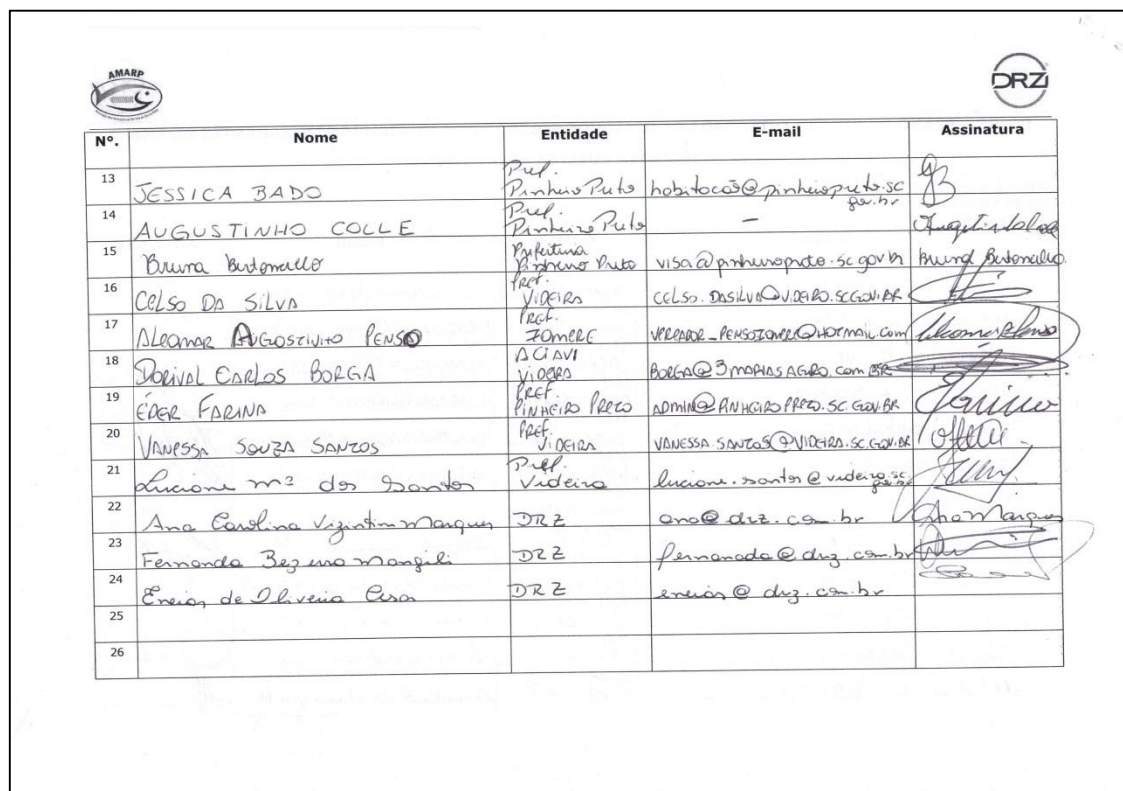 AMARP
DRZ
Nº. Nome Entidade E-mail Assinatura
13 JESSICA BADO Pref. Pinheiro Preto habitacao@pinheiropreto.sc.gov.br
14 AUGUSTINHO COLLE Pref. Pinheiro Preto -
15 Bruna Bertoncello Prefeitura Pinheiro Preto visa@pinheiropreto.sc.gov.br Bruna Bertoncello.
16 CELSO DA SILVA PREF. VIDEIRA CELSO.DASILVA@VIDEIRA.SC.GOV.BR
17 ALEOMAR AUGOSTINHO PENSO PREF. IOMERE
18 DORIVAL CARLOS BORGA ACIAVI VIDEIRA BORGA@3MARIASAGRO.COM.BR
19 ÉDER FARINA PREF. PINHEIRO PRETO ADMIN@PINHEIROPRETO.SC.GOV.BR
20 VANESSA SOUZA SANTOS PREF. VIDEIRA VANESSA.SANTOS@VIDEIRA.SC.GOV.BR
21 Luciane Mª dos Santos Pref. Videira luciane.santos@videira.sc.gov.br
22 Ana Carolina Vizintim Marques DRZ ana@drz.com.br Ana Marques
23 Fernanda Bezerra Mangili DRZ fernanda@drz.com.br
24 Eneias de Oliveira Cesar DRZ eneias@drz.com.br
25
26